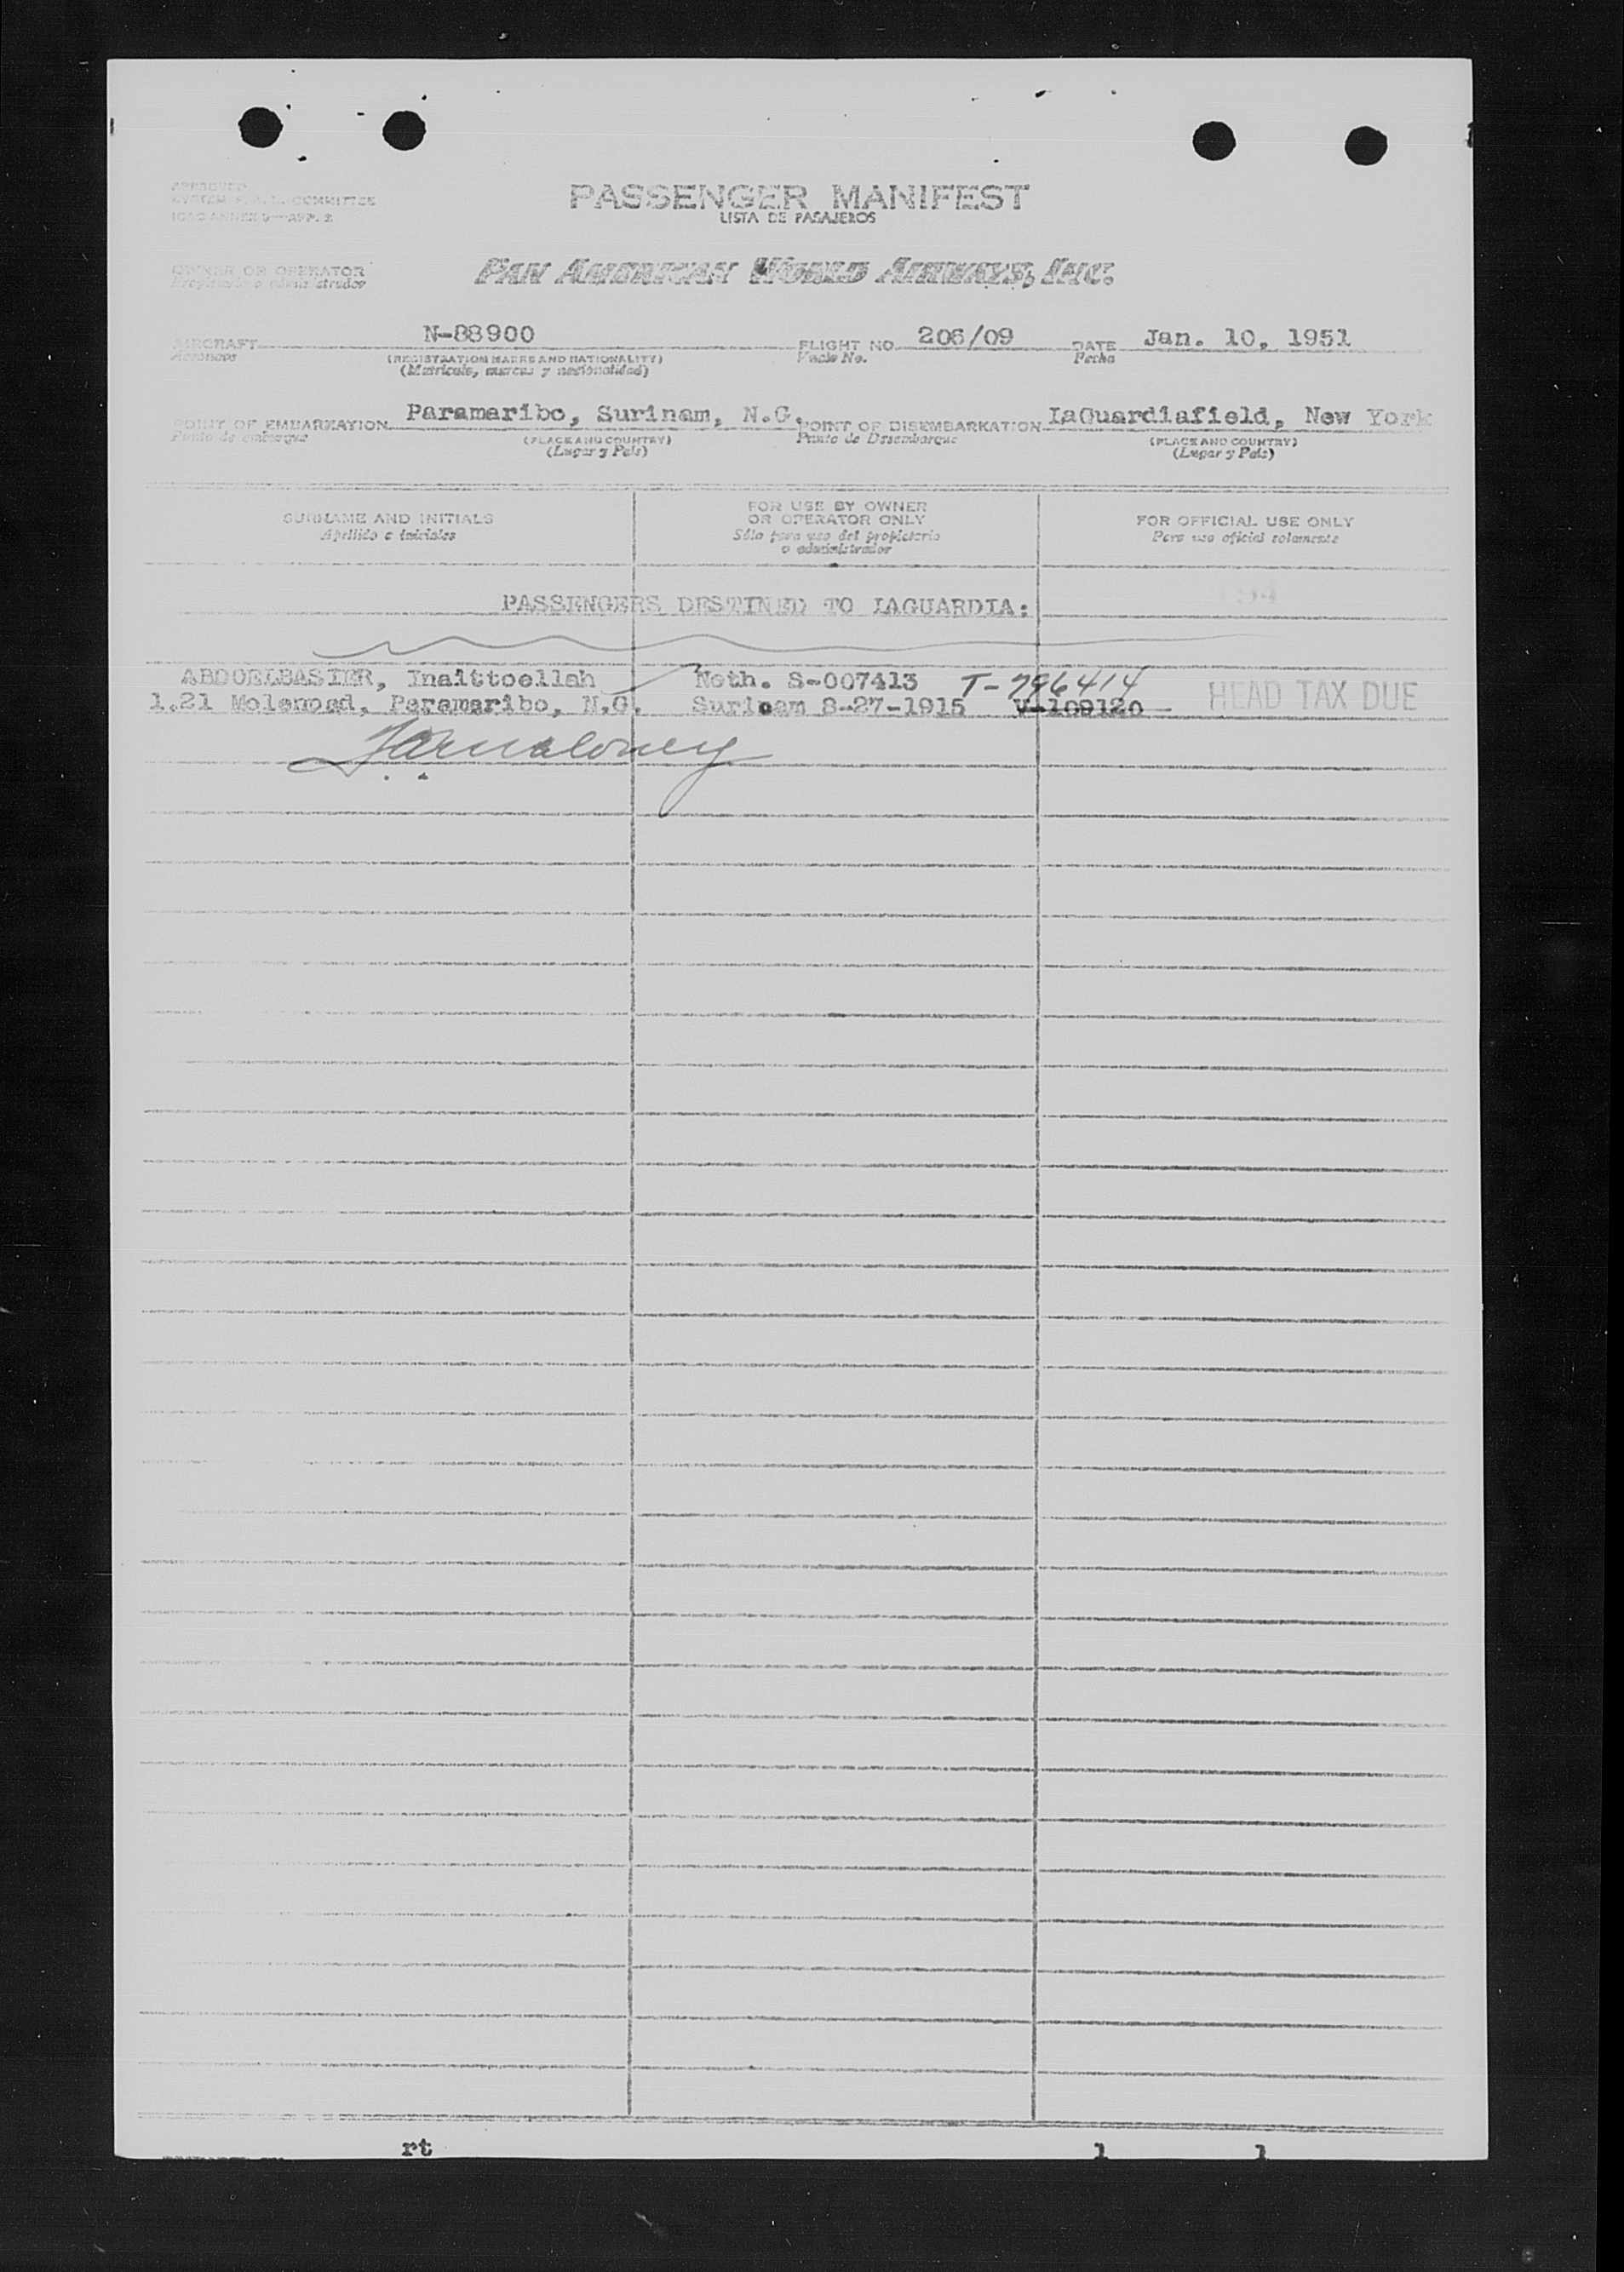 APPROVED
SYSTEM F. A. L. COMMITTEE
ICAO ANNEX 9—APP. 2
PASSENGER MANIFEST
LISTA DE PASAJEROS
OWNER OR OPERATOR
Propietario o administrador
PAN AMERICAN WORLD AIRWAYS, INC.
AIRCRAFT N-88900 FLIGHT NO. 206/09 DATE Jan. 10, 1951
Aeronave (REGISTRATION MARKS AND NATIONALITY) Vuelo No. Fecha
(Matricula, marcas y nacionalidad)
POINT OF EMBARKATION Paramaribo, Surinam, N.G. POINT OF DISEMBARKATION LaGuardiafield, New York
Punto de embarque (PLACE AND COUNTRY) Punto de Desembarque (PLACE AND COUNTRY)
(Lugar y Pais) (Lugar y Pais)
SURNAME AND INITIALS FOR USE BY OWNER OR OPERATOR ONLY FOR OFFICIAL USE ONLY
Apellido e iniciales Sólo para uso del propietario o administrador Para uso oficial solamente
PASSENGERS DESTINED TO LAGUARDIA:
ABDOELBASIER, Inaittoellah Neth. S-007413 T-796414
1.21 Molenpad, Paramaribo, N.G. Surinam 8-27-1915 V-109120 HEAD TAX DUE
rt 1 1